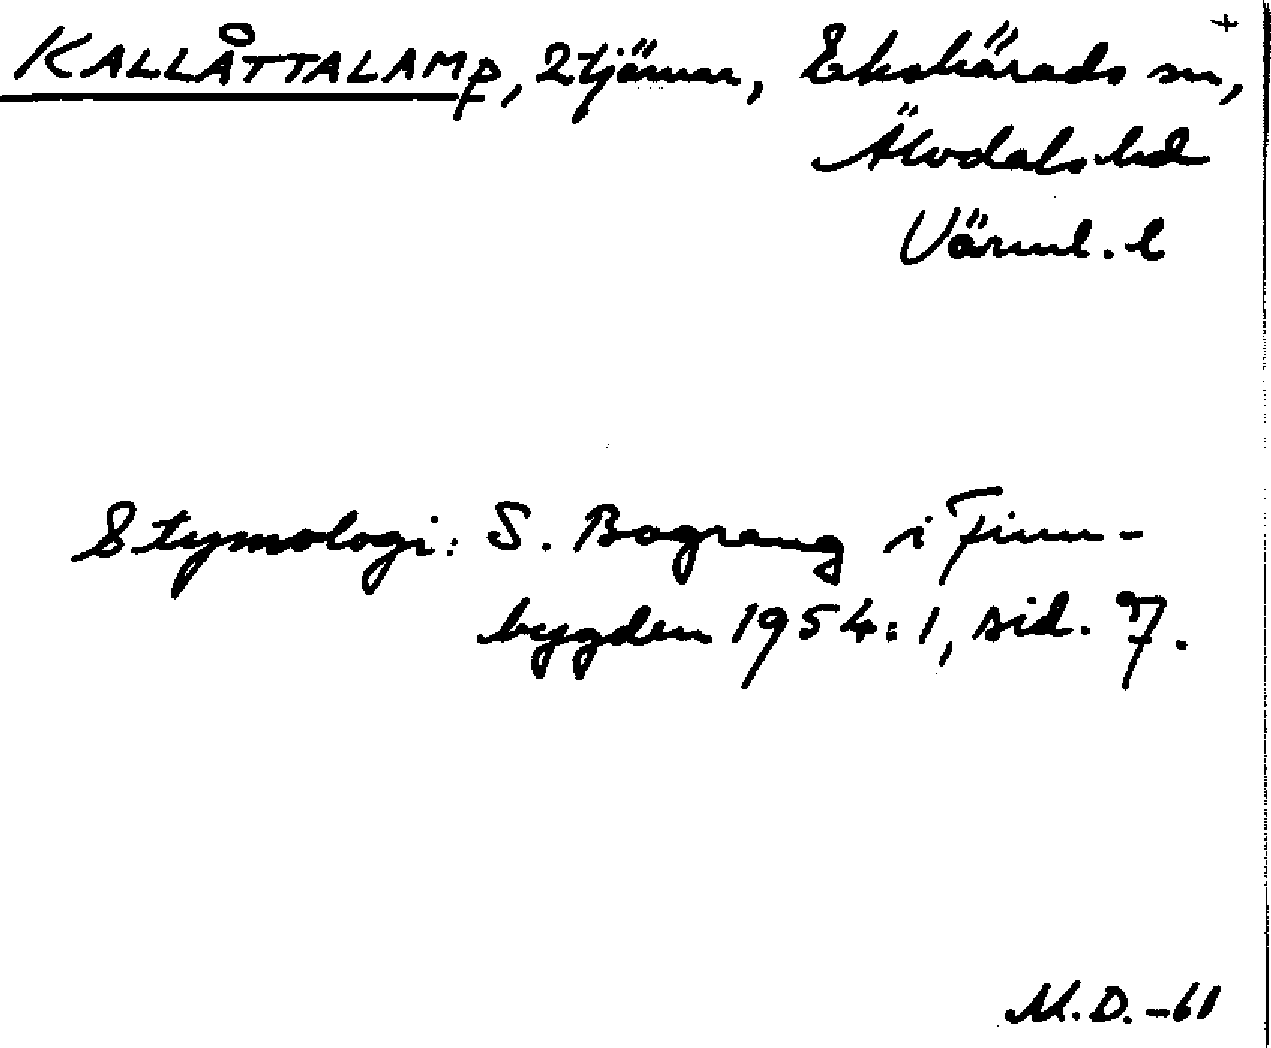 +
KALLÅTTALAMP, 2 tjärnar, Ekshärads sn,
Älvdals hd
Värml. l
Etymologi: S. Bograng i Finn-
bygden 1954:1, sid. 7.
M.D. -61